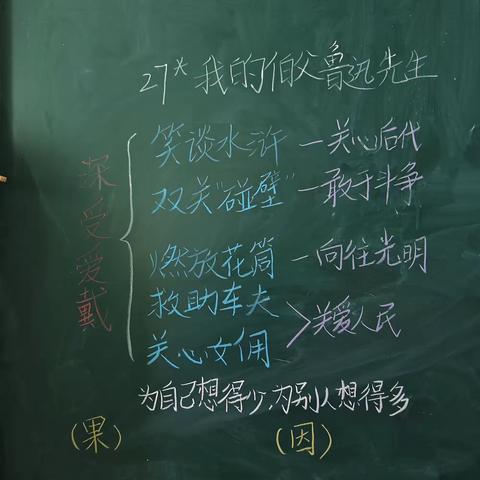 27*我的伯父鲁迅先生
深受爱戴
笑谈水浒—关心后代
双关"碰壁"—敢于斗争
燃放花筒—向往光明
救助车夫
关心女佣
>关爱人民
为自己想得少,为别人想得多
(果) (因)